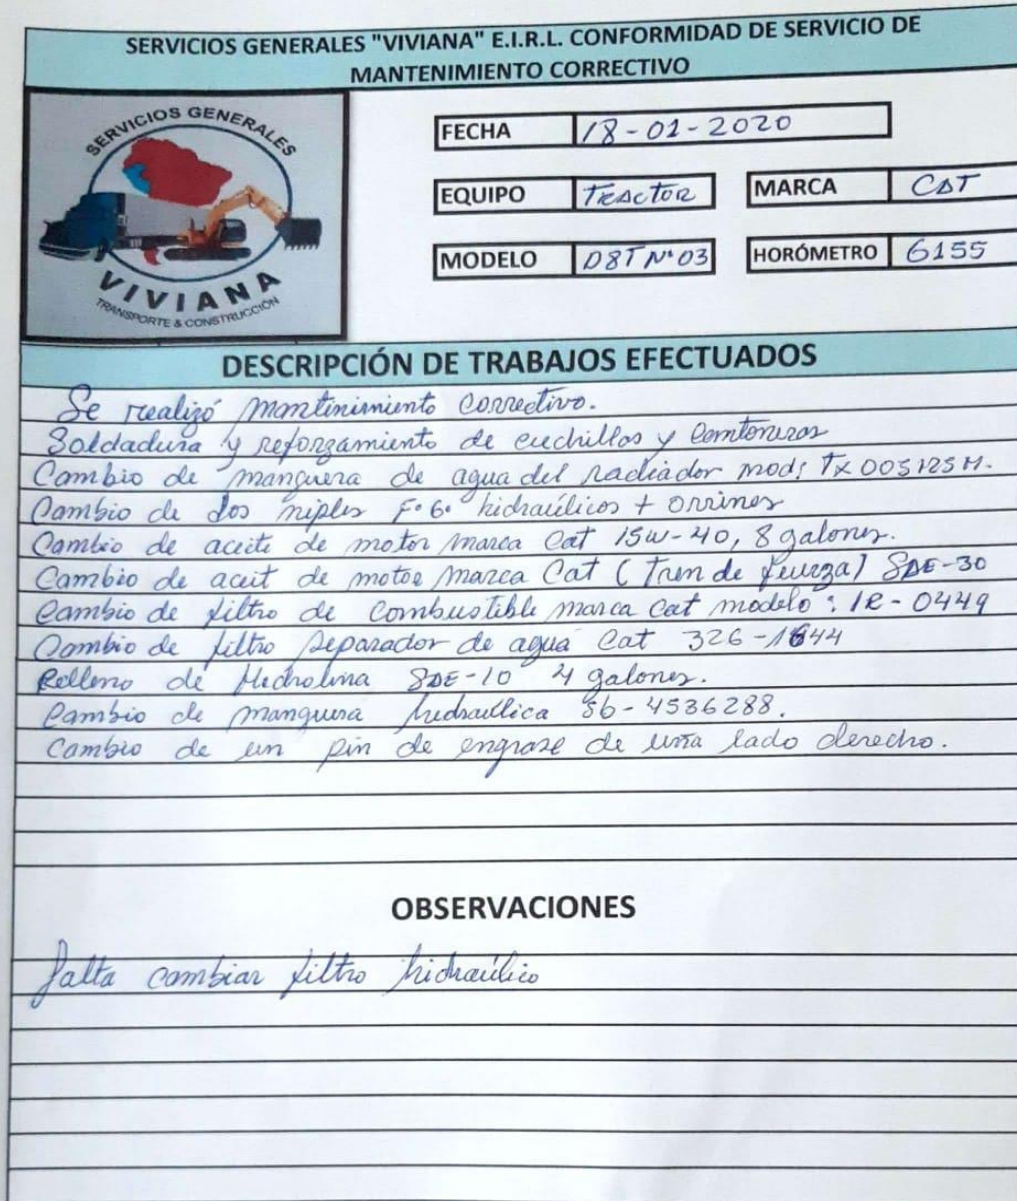 SERVICIOS GENERALES "VIVIANA" E.I.R.L. CONFORMIDAD DE SERVICIO DE
MANTENIMIENTO CORRECTIVO
SERVICIOS GENERALES
VIVIANA
TRANSPORTE & CONSTRUCCIÓN
FECHA 18-01-2020
EQUIPO TRACTOR MARCA CAT
MODELO D8T N°03 HORÓMETRO 6155
DESCRIPCIÓN DE TRABAJOS EFECTUADOS
Se realizó mantinimiento correctivo.
Soldadura y reforzamiento de cuchillas y cantoneras
Cambio de manguera de agua del radiador mod: TX005125H.
Cambio de dos niples F.6. hidraúlicos + orrines
Cambio de aceite de motor marca Cat 15W-40, 8 galones.
Cambio de aceit de motor marca Cat (Tren de fuerza) SAE-30
Cambio de filtro de combustible marca Cat modelo: 1R-0449
Cambio de filtro separador de agua Cat 326-1644
Relleno de Hidrolina SAE-10 4 galones.
Cambio de manguera hidraúlica 56-4536288.
Cambio de un pin de engrase de uña lado derecho.
OBSERVACIONES
falta cambiar filtro hidraúlico